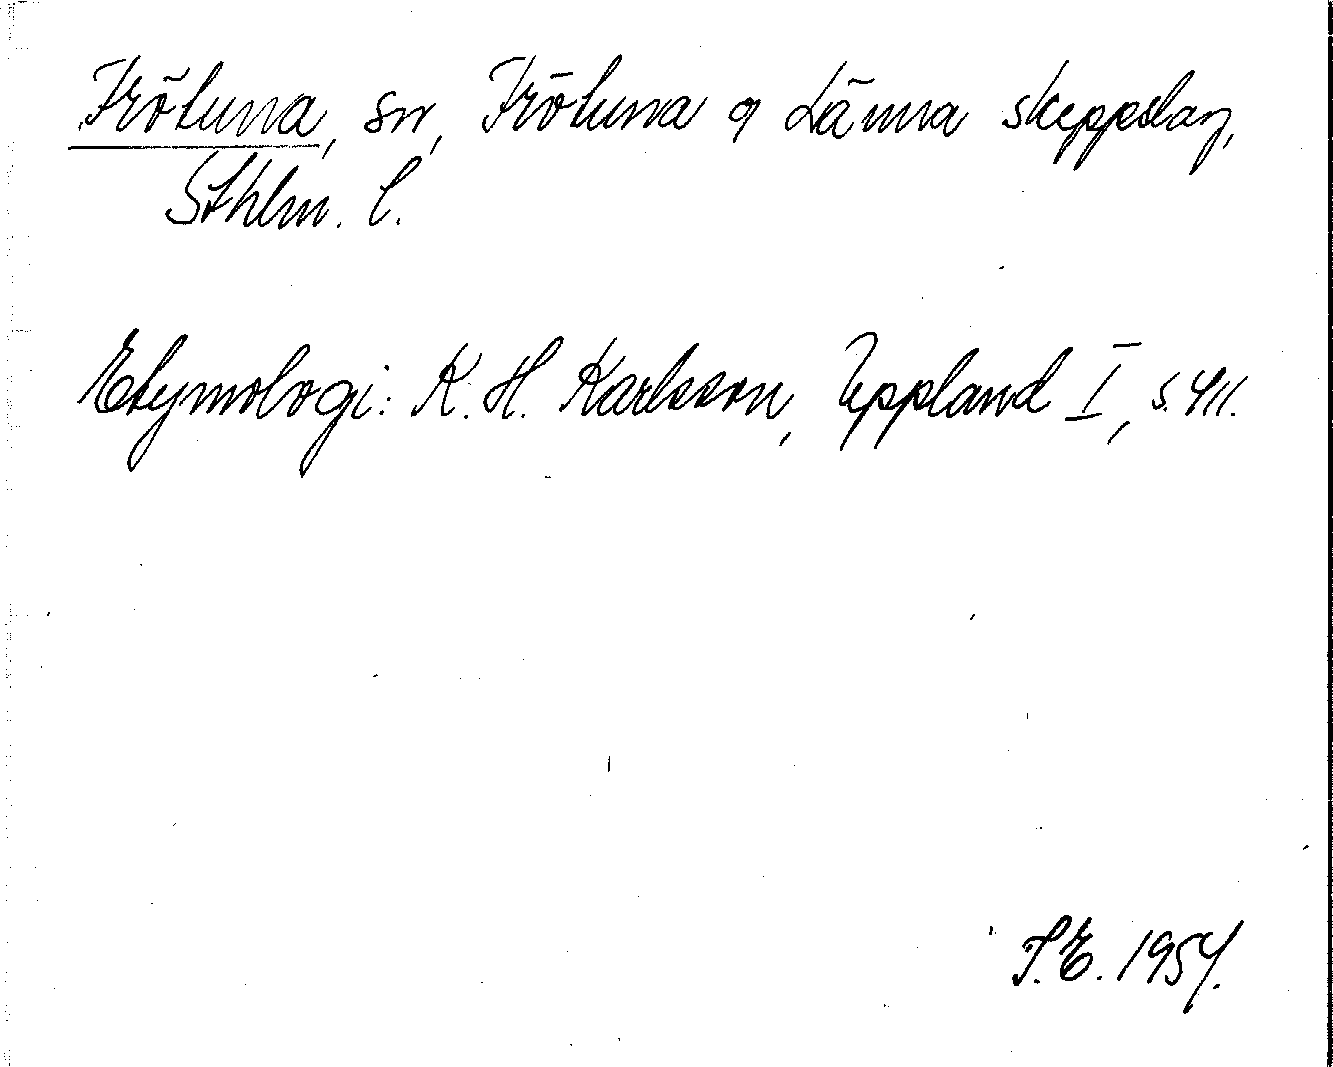 Frötuna, sn, Frötuna o Länna skeppslag,
Sthlm. l.
Etymologi: K. H. Karlsson, Uppland I, s. 411.
S.E. 1954.